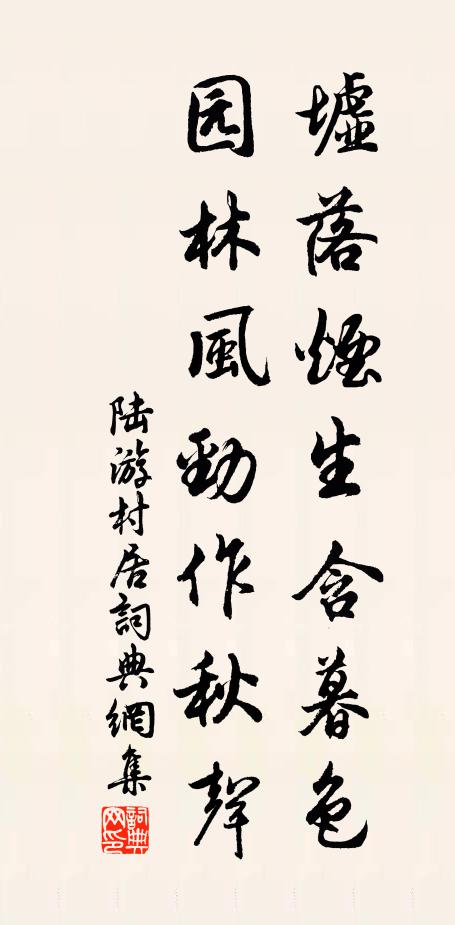 墟落煙生含暮色
园林風勁作秋聲
陆游村居詞典網集
詞典网印